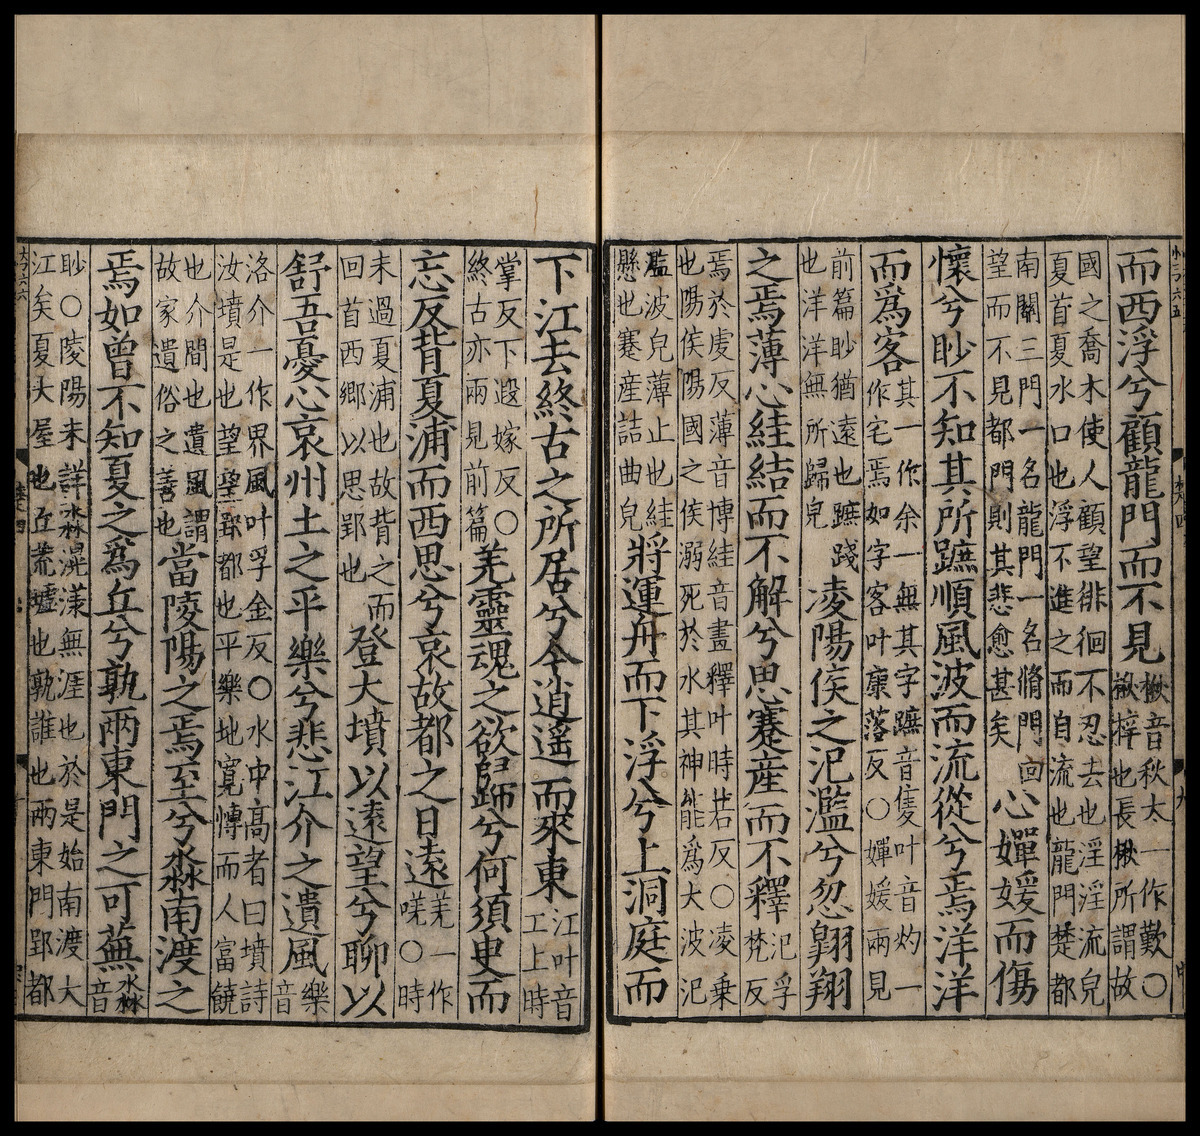 而西浮兮顧龍門而不見
楸音秋太一作歎○
楸梓也長楸所謂故
國之喬木使人顧望徘徊不忍去也淫淫流皃
夏首夏水口也浮不進之而自流也龍門楚都
南關三門一名龍門一名脩門回
望而不見都門則其悲愈甚矣
心嬋媛而傷
懷兮眇不知其所蹠順風波而流從兮焉洋洋
而爲客
其一作余一無其字蹠音隻叶音灼一
作宅焉如字客叶康落反○嬋媛兩見
前篇眇猶遠也蹠踐
也洋洋無所歸皃
凌陽侯之氾濫兮忽翱翔
之焉薄心絓結而不解兮思蹇産而不釋
氾孚
梵反
焉於虔反薄音博絓音畫釋叶時若反○凌乗
也陽侯陽國之侯溺死於水其神能爲大波氾
濫波皃薄止也絓
懸也蹇産詰曲皃
將運舟而下浮兮上洞庭而
下江去終古之所居兮今逍遥而來東
江叶音
工上時
掌反下遐嫁反○
終古亦兩見前篇
羌靈魂之欲歸兮何須臾而
忘反背夏浦而西思兮哀故都之日遠
羌一作
唴○時
未過夏浦也故背之而
回首西鄉以思郢也
登大墳以遠望兮聊以
舒吾憂心哀州土之平樂兮悲江介之遺風
樂
音
洛介一作界風叶孚金反○水中高者曰墳詩
汝墳是也望望郢都也平樂地寛愽而人富饒
也介間也遺風謂
故家遺俗之善也
當陵陽之焉至兮淼南渡之
焉如曾不知夏之爲丘兮孰兩東門之可蕪
淼
音
眇○陵陽未詳淼滉漾無涯也於是始南渡大
江矣夏大屋也丘荒墟也孰誰也兩東門郢都